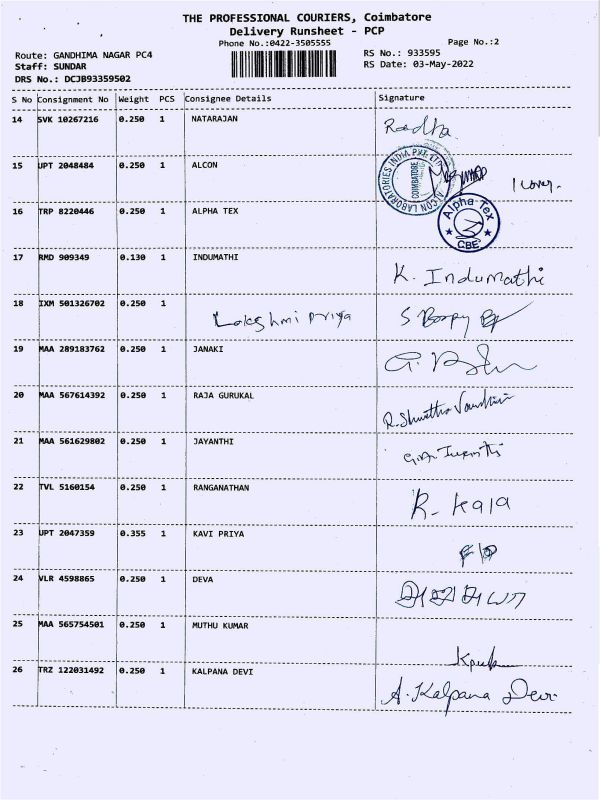 THE PROFESSIONAL COURIERS, Coimbatore
Delivery Runsheet - PCP
Phone No.:0422-3505555
Page No.:2
Route: GANDHIMA NAGAR PC4
RS No.: 933595
Staff: SUNDAR
RS Date: 03-May-2022
DRS No.: DCJB93359502
S No Consignment No Weight PCS Consignee Details Signature
14 SVK 10267216 0.250 1 NATARAJAN Radha
15 UPT 2048484 0.250 1 ALCON
ALCON LABORATORIES INDIA PVT. LTD
COIMBATORE
1 cover.
16 TRP 8220446 0.250 1 ALPHA TEX
Alpha Tex
CBE
17 RMD 909349 0.130 1 INDUMATHI K. Indumathi
18 IXM 501326702 0.250 1 Lakshmi priya
19 MAA 289183762 0.250 1 JANAKI
20 MAA 567614392 0.250 1 RAJA GURUKAL
21 MAA 561629802 0.250 1 JAYANTHI
22 TVL 5160154 0.250 1 RANGANATHAN R- Kala
23 UPT 2047359 0.355 1 KAVI PRIYA
24 VLR 4598865 0.250 1 DEVA
25 MAA 565754501 0.250 1 MUTHU KUMAR
26 TRZ 122031492 0.250 1 KALPANA DEVI A. Kalpana Devi